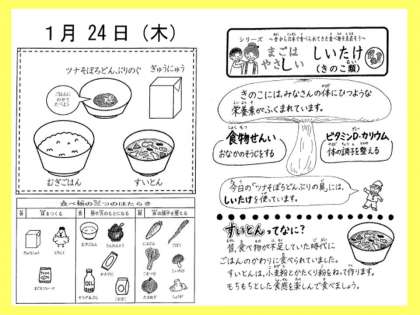 1月 24日 (木)
ツナそぼろどんぶりのぐ
ぎゅうにゅう
ごはんに
のせて
たべよう
むぎごはん
すいとん
食べ物の三つのはたらき
シリーズ
まごは
やさしい
しいたけ
(きのこ類)
きのこには、みなさんの体にひつような
栄養素がふくまれています。
食物せんい
おなかのそうじをする
ビタミンD・カリウム
体の調子を整える
今日の「ツナそぼろどんぶりの具」には、
しいたけを使っています。
すいとんってなに?
昔、食べ物が不足していた時代に
ごはんのかわりに食べられていました。
すいとんは、小麦粉とかたくり粉をねって作ります。
もちもちとした食感を楽しんで食べましょう。